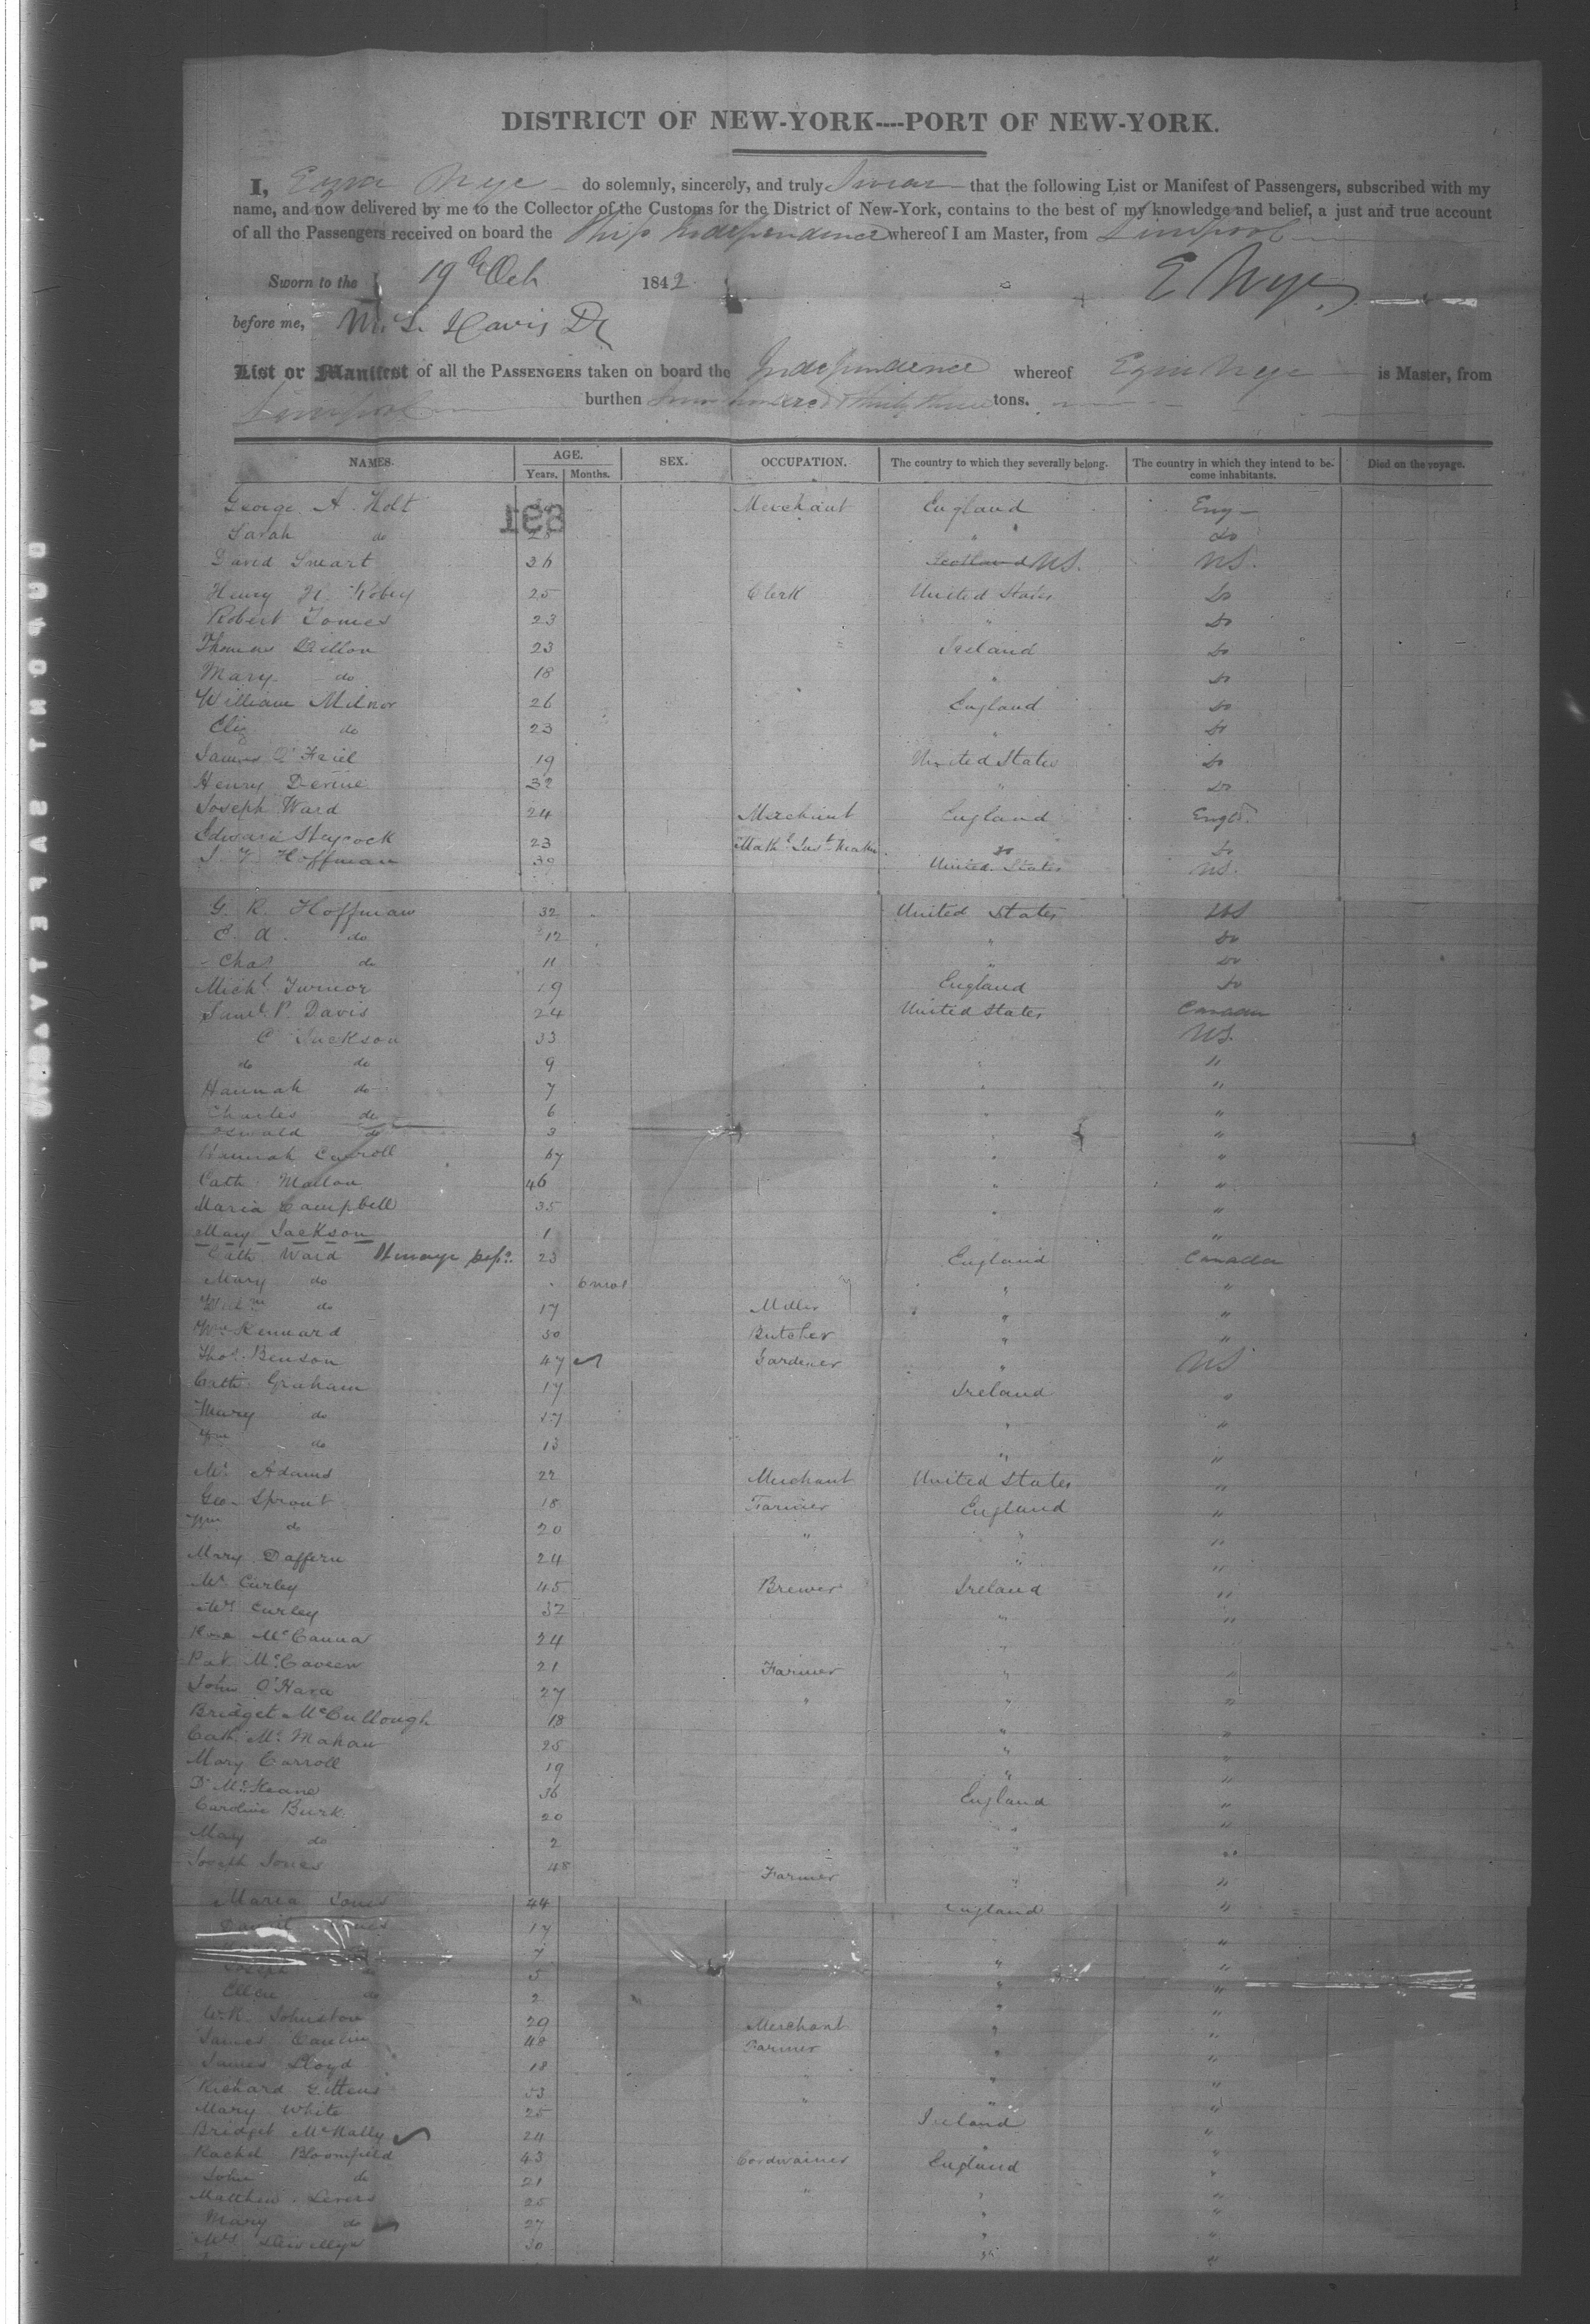 DISTRICT OF NEW-YORK----PORT OF NEW-YORK.
I, Ezra Nye do solemnly, sincerely, and truly swear that the following List or Manifest of Passengers, subscribed with my
name, and now delivered by me to the Collector of the Customs for the District of New-York, contains to the best of my knowledge and belief, a just and true account
of all the Passengers received on board the Ship Independence whereof I am Master, from Liverpool
Sworn to the 19th Oct 1842 E Nye
before me, M. L. Davis
List or Manifest of all the PASSENGERS taken on board the Independence whereof Ezra Nye is Master, from
Liverpool burthen hundred thirty three tons.
NAMES. AGE. SEX. OCCUPATION. The country to which they severally belong. The country in which they intend to be- Died on the voyage.
Years. Months. come inhabitants.
George A. Holt Merchant England Eng
Sarah do 28 " do
David Smeart 36 Scotland US. US.
Henry H. 25 Clerk United States Do
Robert Tomes 23 " Do
Thomas Dillon 23 Ireland Do
Mary do 18 " Do
William Milnor 26 England Do
Eliz do 23 " Do
James O'Friel 19 United States Do
Henry Devine 32 " Do
Joseph Ward 24 Merchant England Engd.
Edward Heycock 23 Mathl Inst Maker do Do
Hoffman 30 United States US.
G. R. Hoffman 32 United States US
E. A. do 12 " Do
Chas do 11 " Do
Michl 19 England Do
Saml. P. Davis 24 United States Canada
C Jackson 33 " US.
do do 9 " "
Hannah do 7 " "
Charles do 6 " "
Oswald do 3 " "
Hannah Carroll 67 " "
Cath Mallon 46 " "
Maria Campbell 35 " "
Mary Jackson 1 "
Cath Ward Steerage 23 England Canada
Mary do 6 mos " "
do 17 Miller " "
Wm Kennard 30 Butcher " "
Thos. Benson 47 Gardener " US
Cath Graham 17 Ireland "
Mary do 17 " "
Wm do 13 " "
Mr Adams 22 Merchant United States "
Geo Sprout 18 Farmer England "
Wm do 20 " " "
Mary Daffern 24 " "
Mr Curley 45 Brewer Ireland "
Mrs Curley 32 " "
Rose McCanna 24 " "
Pat McCaveen 21 Farmer " "
John O'Hara 27 " " "
Bridget McCullough 18 " "
Cath McMahan 25 " "
Mary Carroll 19 " "
McKeane 36 England "
Caroline Burk 20 " "
May do 2 " "
Joseph Jones 48 Farmer " "
Maria Jones 44 England "
17 " "
7 " "
5 " "
Ellen do 2 " "
W.R. Johnston 29 Merchant " "
James 48 Farmer " "
James Lloyd 18 " " "
Richard Gittens 33 " " "
Mary White 25 Ireland "
Bridget McNally 24 " "
Rachel Bloomfield 43 Cordwainer England "
John do 21 " " "
Matthew 25 " "
Mary do 27 " "
Mrs Llewellyn 30 " "